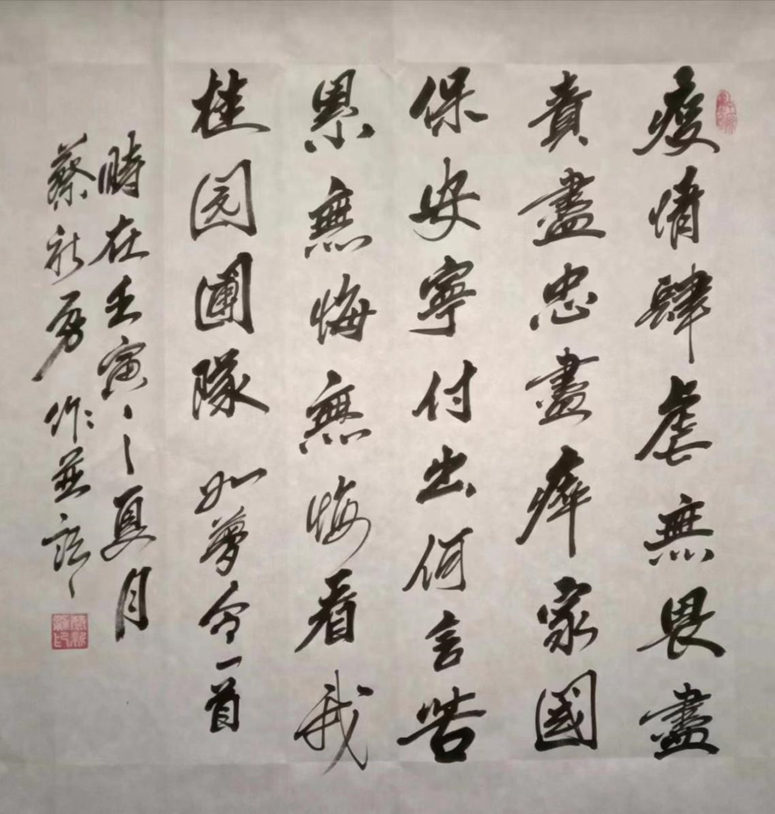 疫情肆虐無畏盡
責盡忠盡瘁家國
保安寧付出何言苦
累無悔無悔看我
桂园團隊 如夢令一首
時在壬寅之夏月
蔡新勇作並記